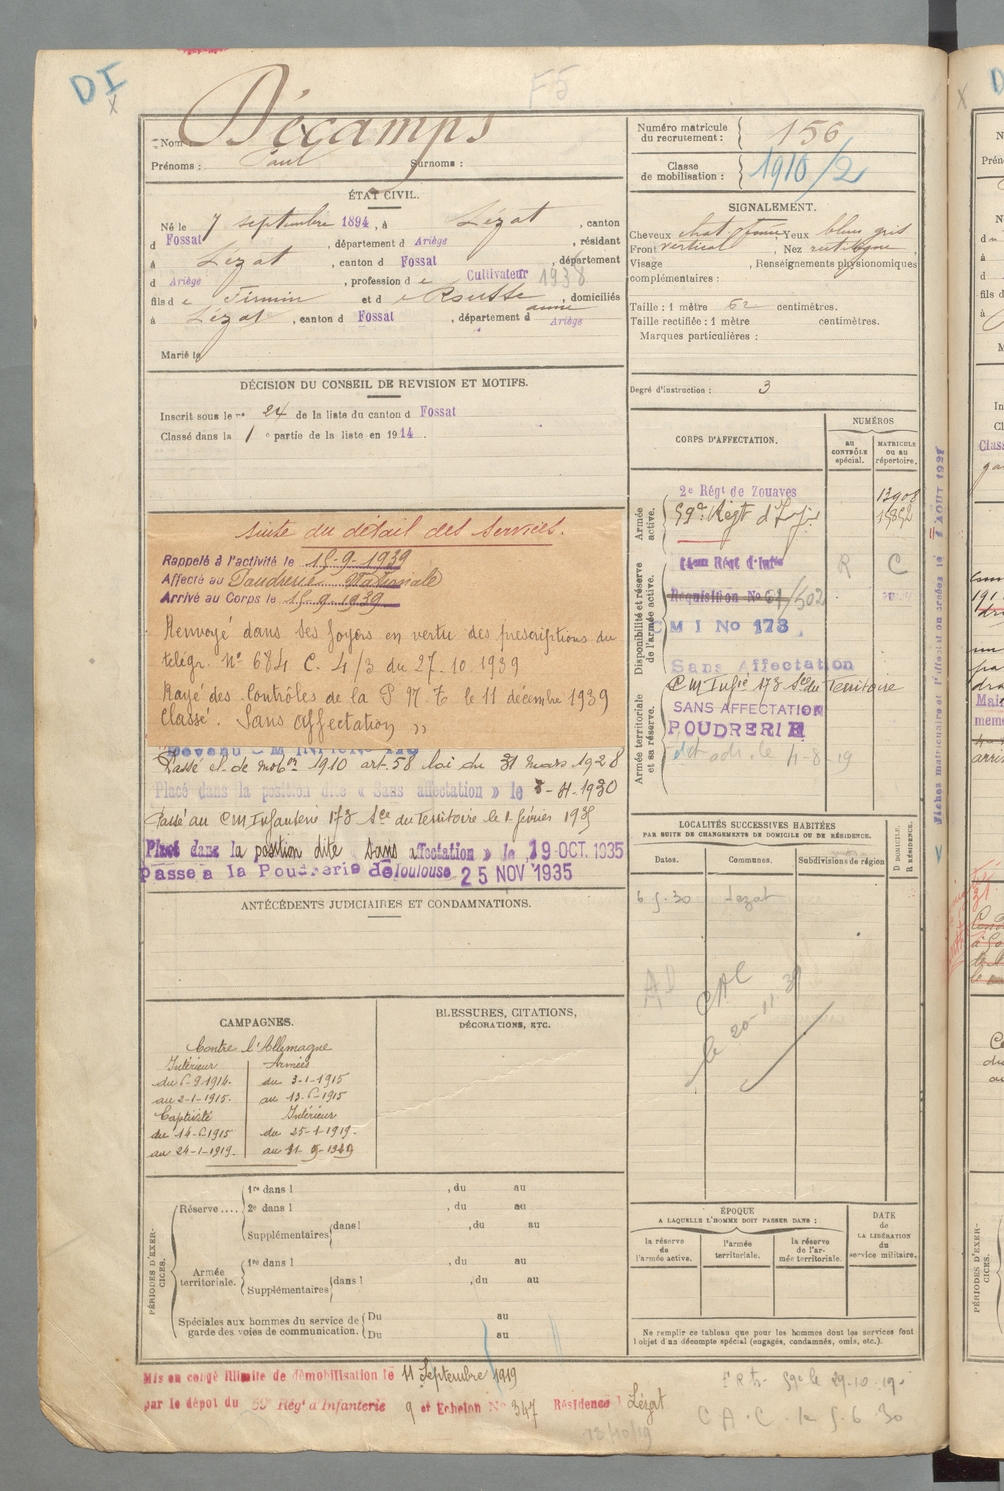 DI
x
F5
Nom Décamps
Prénoms : Paul Surnoms :
Numéro matricule du recrutement : 156
Classe de mobilisation : 1910/2
ÉTAT CIVIL.
Né le 7 septembre 1894, à Lézat, canton
d Fossat, département d Ariège, résidant
à Lézat, canton d Fossat, département
d Ariège, profession d e Cultivateur 1938
fils d e Firmin et d e Rousse anne, domiciliés
à Lézat, canton d Fossat, département d Ariège
Marié le
SIGNALEMENT.
Cheveux chat. , Yeux bleus gris
Front vertical, Nez rectiligne
Visage , Renseignements physionomiques
complémentaires :
Taille : 1 mètre 62 centimètres.
Taille rectifiée : 1 mètre centimètres.
Marques particulières :
Degré d'instruction : 3
DÉCISION DU CONSEIL DE REVISION ET MOTIFS.
Inscrit sous le no 24 de la liste du canton d Fossat
Classé dans la 1 e partie de la liste en 1914.
suite du détail des services.
Rappelé à l'activité le 15-9-1939
Affecté au Poudrerie Nationale
Arrivé au Corps le 15-9-1939
Renvoyé dans ses foyers en vertu des prescriptions du
télégr. N° 684 C. 4/3 du 27.10.1939
Rayé des Contrôles de la P N T. le 11 décembre 1939
Classé. Sans affectation
Passé cl. de mobon 1910 art. 58 loi du 31 mars 1928
Placé dans la position dite « Sans affectation » le -11-1930
Passé au CM Infanterie 173 Sce du Territoire le 1 février 193
Placé dans la position dite « Sans affectation » le 19 OCT. 1935
Passé à la Poudrerie de Toulouse 25 NOV 1935
CORPS D'AFFECTATION.
NUMÉROS
au CONTRÔLE spécial.
MATRICULE OU AU RÉPERTOIRE.
Armée active.
2e Régt de Zouaves 13908
59e Régt d'Inf. 15852
Disponibilité et réserve de l'armée active.
R C
Réquisition No 61/502
C M I No 173
Sans Affectation
Armée territoriale et sa réserve.
CM Infie 173 Sce du Territoire
SANS AFFECTATION
POUDRERIE
ANTÉCÉDENTS JUDICIAIRES ET CONDAMNATIONS.
LOCALITÉS SUCCESSIVES HABITÉES
PAR SUITE DE CHANGEMENTS DE DOMICILE OU DE RÉSIDENCE.
D DOMICILE. R RÉSIDENCE.
Dates. Communes. Subdivisions de région
6 5.30 Lezat
CAC
le 20-11-31
CAMPAGNES.
Contre l'Allemagne
Intérieur
du 6-9-1914.
au 2-1-1915.
Captivité
du 14-6-1915
au 24-1-1919.
Armées
du 3-1-1915
au 13-6-1915
Intérieur
du 25-1-1919.
au 11-9-1919
BLESSURES, CITATIONS,
DÉCORATIONS, ETC.
PÉRIODES D'EXERCICES.
Réserve....
1re dans l , du au
2e dans l , du au
Supplémentaires dans l , du au
Armée territoriale.
1re dans l , du au
Supplémentaires dans l , du au
Spéciales aux hommes du service de garde des voies de communication.
Du au
Du au
ÉPOQUE
A LAQUELLE L'HOMME DOIT PASSER DANS :
la réserve de l'armée active.
l'armée territoriale.
la réserve de l'armée territoriale.
DATE de LA LIBÉRATION du service militaire.
Ne remplir ce tableau que pour les hommes dont les services font
l'objet d'un décompte spécial (engagés, condamnés, omis, etc.).
Mis en congé illimité de démobilisation le 11 Septembre 1919
par le dépôt du 59e Régt d'Infanterie 9 et Echelon No 347 Résidence Lézat
59e le 29-10-19.
C A . C . le 5.6.30
13/10/19